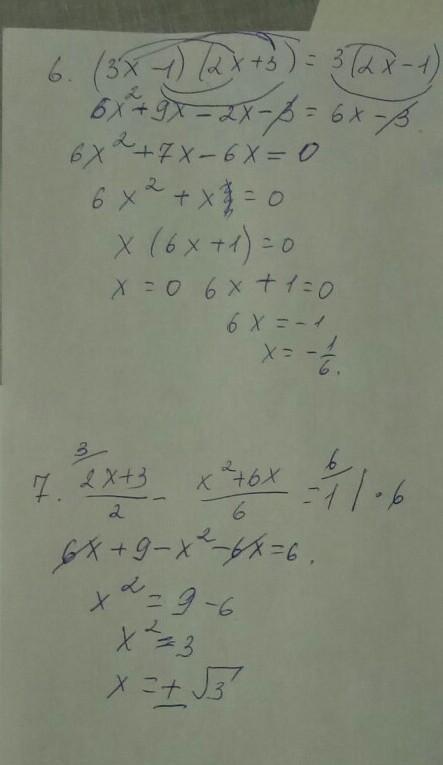 6. (3x - 1)(2x + 3) = 3(2x - 1)
6x² + 9x - 2x - 3 = 6x - 3
6x² + 7x - 6x = 0
6x² + x = 0
x (6x + 1) = 0
x = 0 6x + 1 = 0
6x = -1
x = -1/6.
7. 3/ (2x+3)/2 - (x²+6x)/6 = 6/ 1 | · 6
6x + 9 - x² - 6x = 6.
x² = 9 - 6
x² = 3
x = ± √3